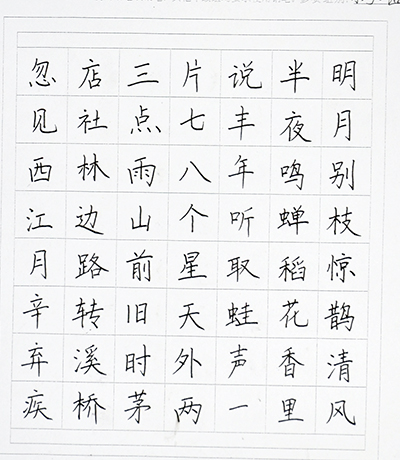 明月别枝惊鹊清风
半夜鸣蝉稻花香里
说丰年听取蛙声一
片七八个星天外两
三点雨山前旧时茅
店社林边路转溪桥
忽见西江月辛弃疾